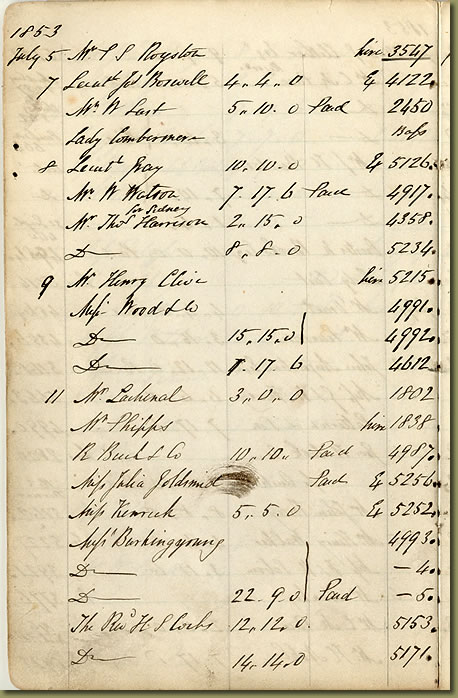 1853
July 5 Mr T S Royston hire 3547
7 Lieut Jas Boswell 4.4.0 & 4122
Mr W Last 5.10.0 Paid 2450
Lady Combermere Bass
8 Lieut Gray 10.10.0 & 5126
Mr W Watson 7.17.6 Paid 4917
for Sidney
Mr Thos Harrison 2.15.0 4358
Do 8.8.0 5234
9 Mr Henry Clive hire 5215
Messrs Wood & Co 4991
Do 15.15.0 4992
Do 7.17.6 4612
11 Mr Lachenal 3.0.0 1802
Mr Phipps hire 1838
R Beck & Co 10.10. Paid 4987
Miss Julia Goldsmid Paid & 5256
Miss Kenrick 5.5.0 & 5252
Messrs 4993
Do – 4
Do 22.9.0 Paid – 5
The Revd H. S Cocks 12.12.0 5153
Do 14.14.0 5171